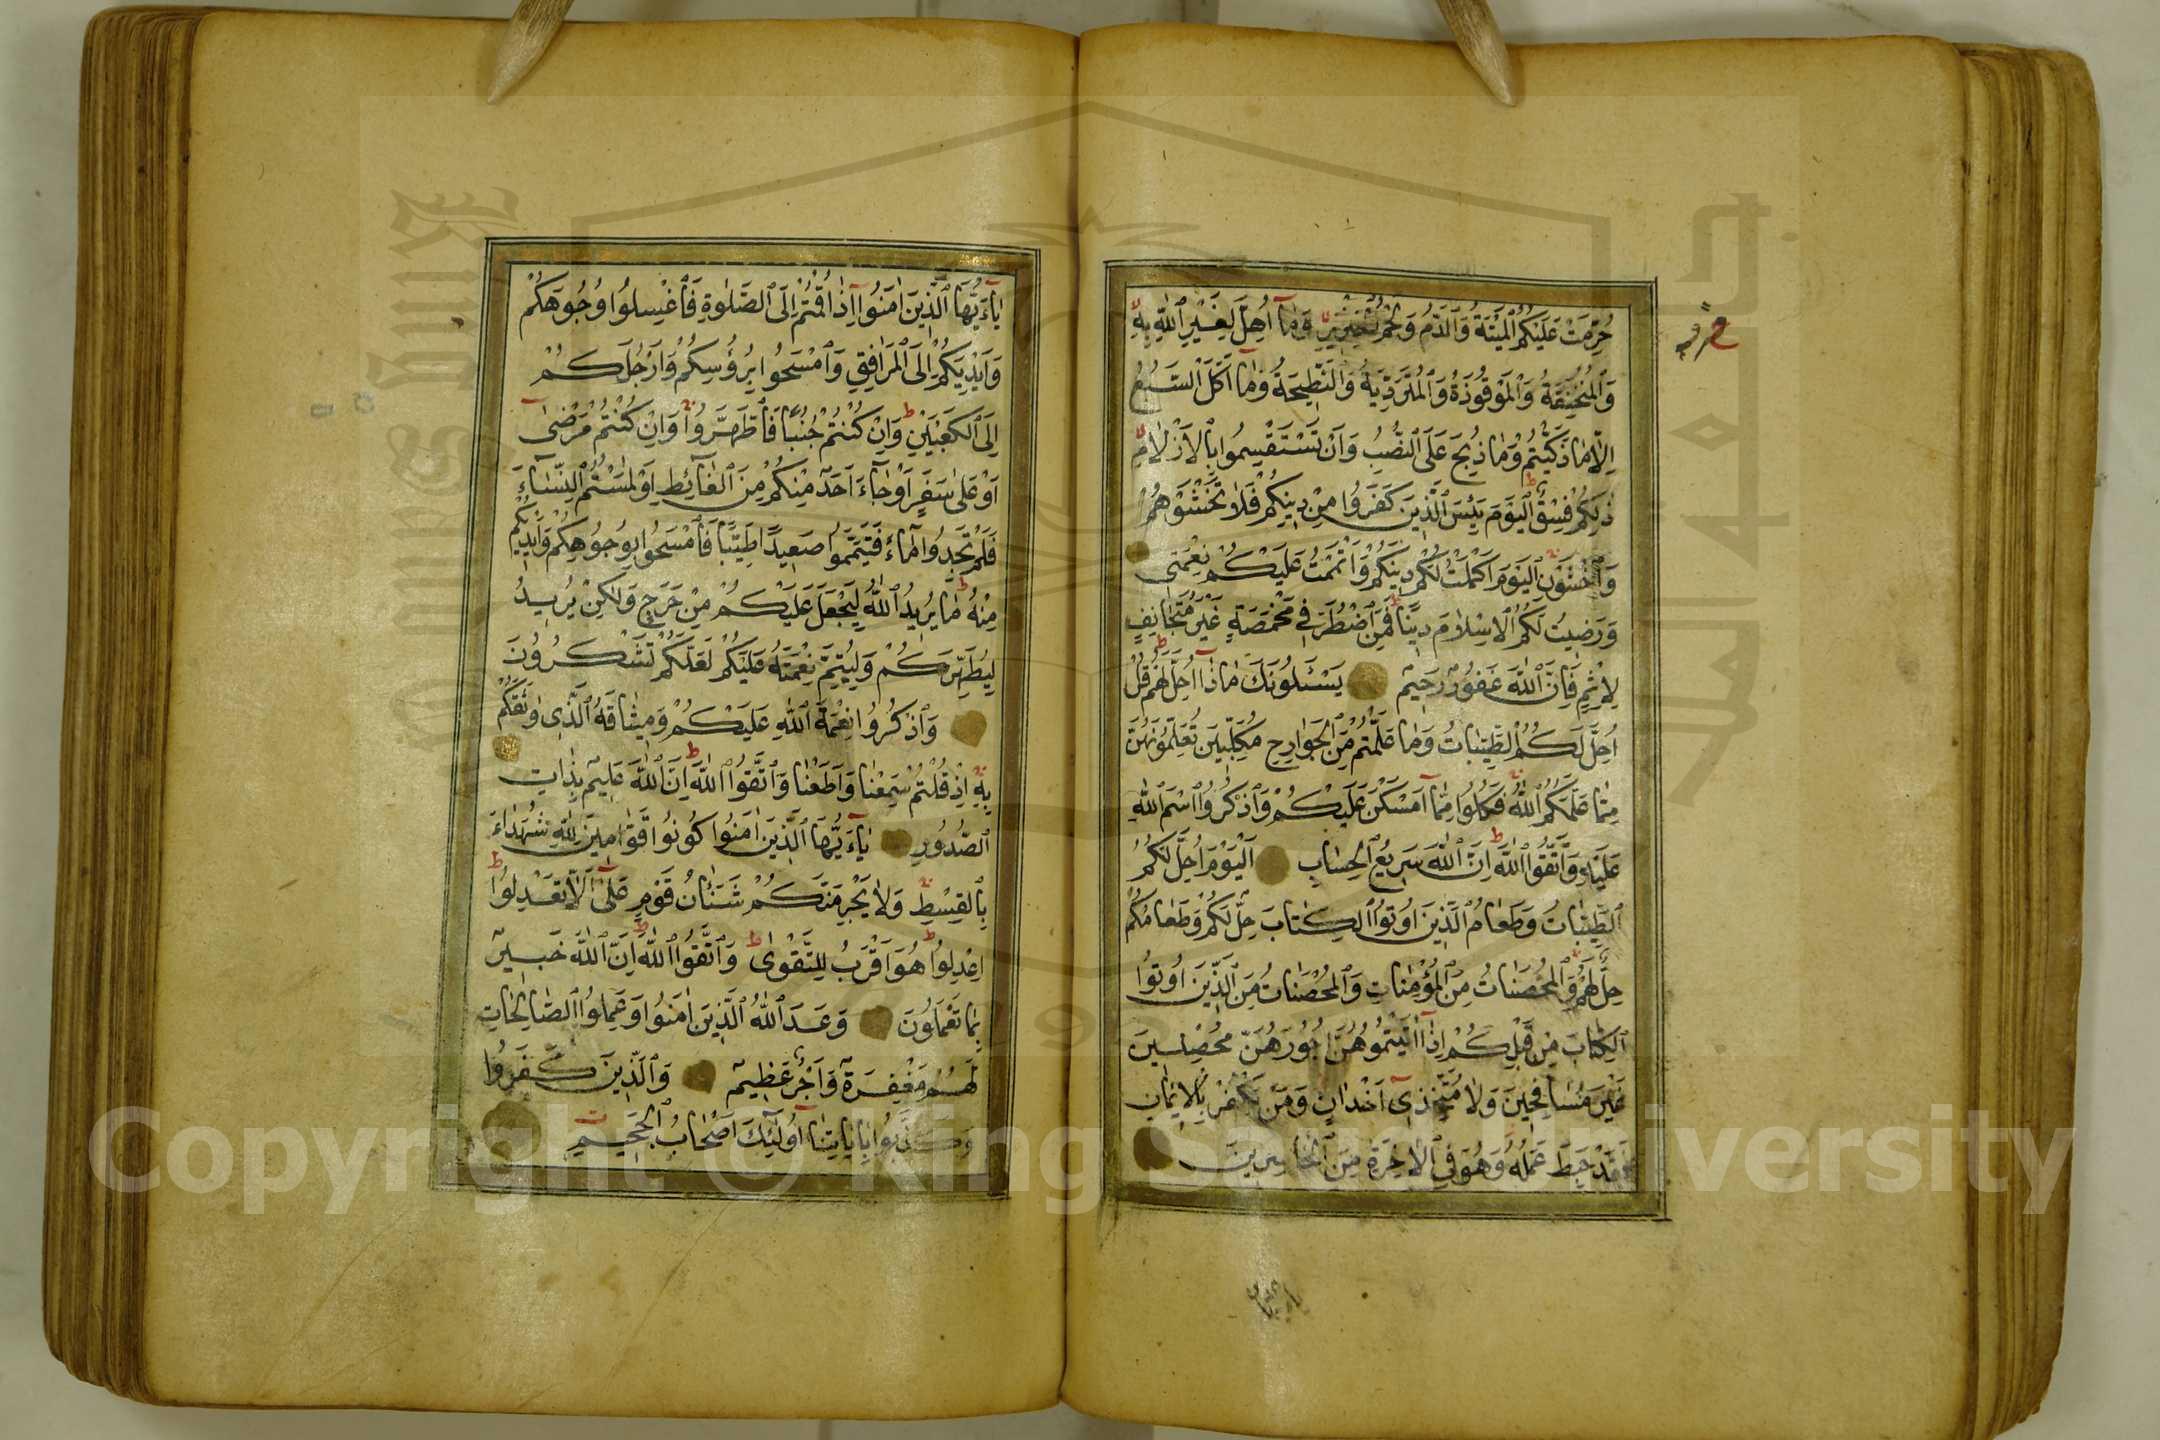 حُرِّمَتْ عَلَيْكُمُ الْمَيْتَةُ وَالدَّمُ وَلَحْمُ الْخِنْزِيرِ وَمَٓا اُهِلَّ لِغَيْرِ اللّٰهِ بِهٖ
وَالْمُنْخَنِقَةُ وَالْمَوْقُوذَةُ وَالْمُتَرَدِّيَةُ وَالنَّطِيحَةُ وَمَٓا اَكَلَ السَّبُعُ
اِلَّا مَا ذَكَّيْتُمْ وَمَا ذُبِحَ عَلَى النُّصُبِ وَاَنْ تَسْتَقْسِمُوا بِالْاَزْلَامِ
ذٰلِكُمْ فِسْقٌ اَلْيَوْمَ يَئِسَ الَّذِينَ كَفَرُوا مِنْ دِينِكُمْ فَلَا تَخْشَوْهُمْ
وَاخْشَوْنِ اَلْيَوْمَ اَكْمَلْتُ لَكُمْ دِينَكُمْ وَاَتْمَمْتُ عَلَيْكُمْ نِعْمَتِى
وَرَضِيتُ لَكُمُ الْاِسْلَامَ دِينًا فَمَنِ اضْطُرَّ فِى مَخْمَصَةٍ غَيْرَ مُتَجَانِفٍ
لِاِثْمٍ فَاِنَّ اللّٰهَ غَفُورٌ رَحِيمٌ يَسْـَٔلُونَكَ مَاذَٓا اُحِلَّ لَهُمْ قُلْ
اُحِلَّ لَكُمُ الطَّيِّبَاتُ وَمَا عَلَّمْتُمْ مِنَ الْجَوَارِحِ مُكَلِّبِينَ تُعَلِّمُونَهُنَّ
مِمَّا عَلَّمَكُمُ اللّٰهُ فَكُلُوا مِمَّٓا اَمْسَكْنَ عَلَيْكُمْ وَاذْكُرُوا اسْمَ اللّٰهِ
عَلَيْهِ وَاتَّقُوا اللّٰهَ اِنَّ اللّٰهَ سَرِيعُ الْحِسَابِ اَلْيَوْمَ اُحِلَّ لَكُمُ
الطَّيِّبَاتُ وَطَعَامُ الَّذِينَ اُوتُوا الْكِتَابَ حِلٌّ لَكُمْ وَطَعَامُكُمْ
حِلٌّ لَهُمْ وَالْمُحْصَنَاتُ مِنَ الْمُؤْمِنَاتِ وَالْمُحْصَنَاتُ مِنَ الَّذِينَ اُوتُوا
الْكِتَابَ مِنْ قَبْلِكُمْ اِذَٓا اٰتَيْتُمُوهُنَّ اُجُورَهُنَّ مُحْصِنِينَ
غَيْرَ مُسَافِحِينَ وَلَا مُتَّخِذِٓى اَخْدَانٍ وَمَنْ يَكْفُرْ بِالْاِيمَانِ
فَقَدْ حَبِطَ عَمَلُهُ وَهُوَ فِى الْاٰخِرَةِ مِنَ الْخَاسِرِينَ
يَٓا اَيُّهَا الَّذِينَ اٰمَنُٓوا اِذَا قُمْتُمْ اِلَى الصَّلٰوةِ فَاغْسِلُوا وُجُوهَكُمْ
وَاَيْدِيَكُمْ اِلَى الْمَرَافِقِ وَامْسَحُوا بِرُؤُسِكُمْ وَاَرْجُلَكُمْ
اِلَى الْكَعْبَيْنِ وَاِنْ كُنْتُمْ جُنُبًا فَاطَّهَّرُوا وَاِنْ كُنْتُمْ مَرْضٰٓى
اَوْ عَلٰى سَفَرٍ اَوْ جَٓاءَ اَحَدٌ مِنْكُمْ مِنَ الْغَٓائِطِ اَوْ لٰمَسْتُمُ النِّسَٓاءَ
فَلَمْ تَجِدُوا مَٓاءً فَتَيَمَّمُوا صَعِيدًا طَيِّبًا فَامْسَحُوا بِوُجُوهِكُمْ وَاَيْدِيكُمْ
مِنْهُ مَا يُرِيدُ اللّٰهُ لِيَجْعَلَ عَلَيْكُمْ مِنْ حَرَجٍ وَلٰكِنْ يُرِيدُ
لِيُطَهِّرَكُمْ وَلِيُتِمَّ نِعْمَتَهُ عَلَيْكُمْ لَعَلَّكُمْ تَشْكُرُونَ
وَاذْكُرُوا نِعْمَةَ اللّٰهِ عَلَيْكُمْ وَمِيثَاقَهُ الَّذِى وَاثَقَكُمْ
بِهٖٓ اِذْ قُلْتُمْ سَمِعْنَا وَاَطَعْنَا وَاتَّقُوا اللّٰهَ اِنَّ اللّٰهَ عَلِيمٌ بِذَاتِ
الصُّدُورِ يَٓا اَيُّهَا الَّذِينَ اٰمَنُوا كُونُوا قَوَّامِينَ لِلّٰهِ شُهَدَٓاءَ
بِالْقِسْطِ وَلَا يَجْرِمَنَّكُمْ شَنَاٰنُ قَوْمٍ عَلٰٓى اَلَّا تَعْدِلُوا
اِعْدِلُوا هُوَ اَقْرَبُ لِلتَّقْوٰى وَاتَّقُوا اللّٰهَ اِنَّ اللّٰهَ خَبِيرٌ
بِمَا تَعْمَلُونَ وَعَدَ اللّٰهُ الَّذِينَ اٰمَنُوا وَعَمِلُوا الصَّالِحَاتِ
لَهُمْ مَغْفِرَةٌ وَاَجْرٌ عَظِيمٌ وَالَّذِينَ كَفَرُوا
وَكَذَّبُوا بِاٰيَاتِنَٓا اُولٰٓئِكَ اَصْحَابُ الْجَحِيمِ
Copyright © King Saud University